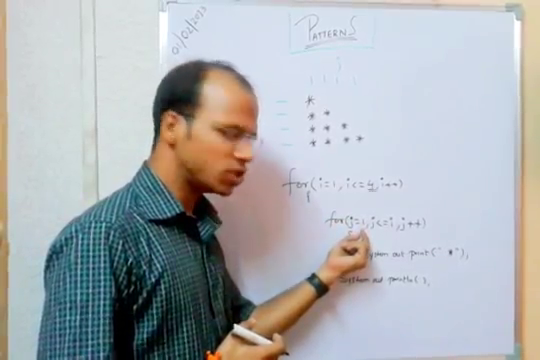 01/02/2013
PATTERNS
j
1 1 1 1
*
* *
* * *
* * * *
for(i=1, i<=4, i++)
{
for(j=1, j<=i, j++)
{
System out print(" *");
System out println( );